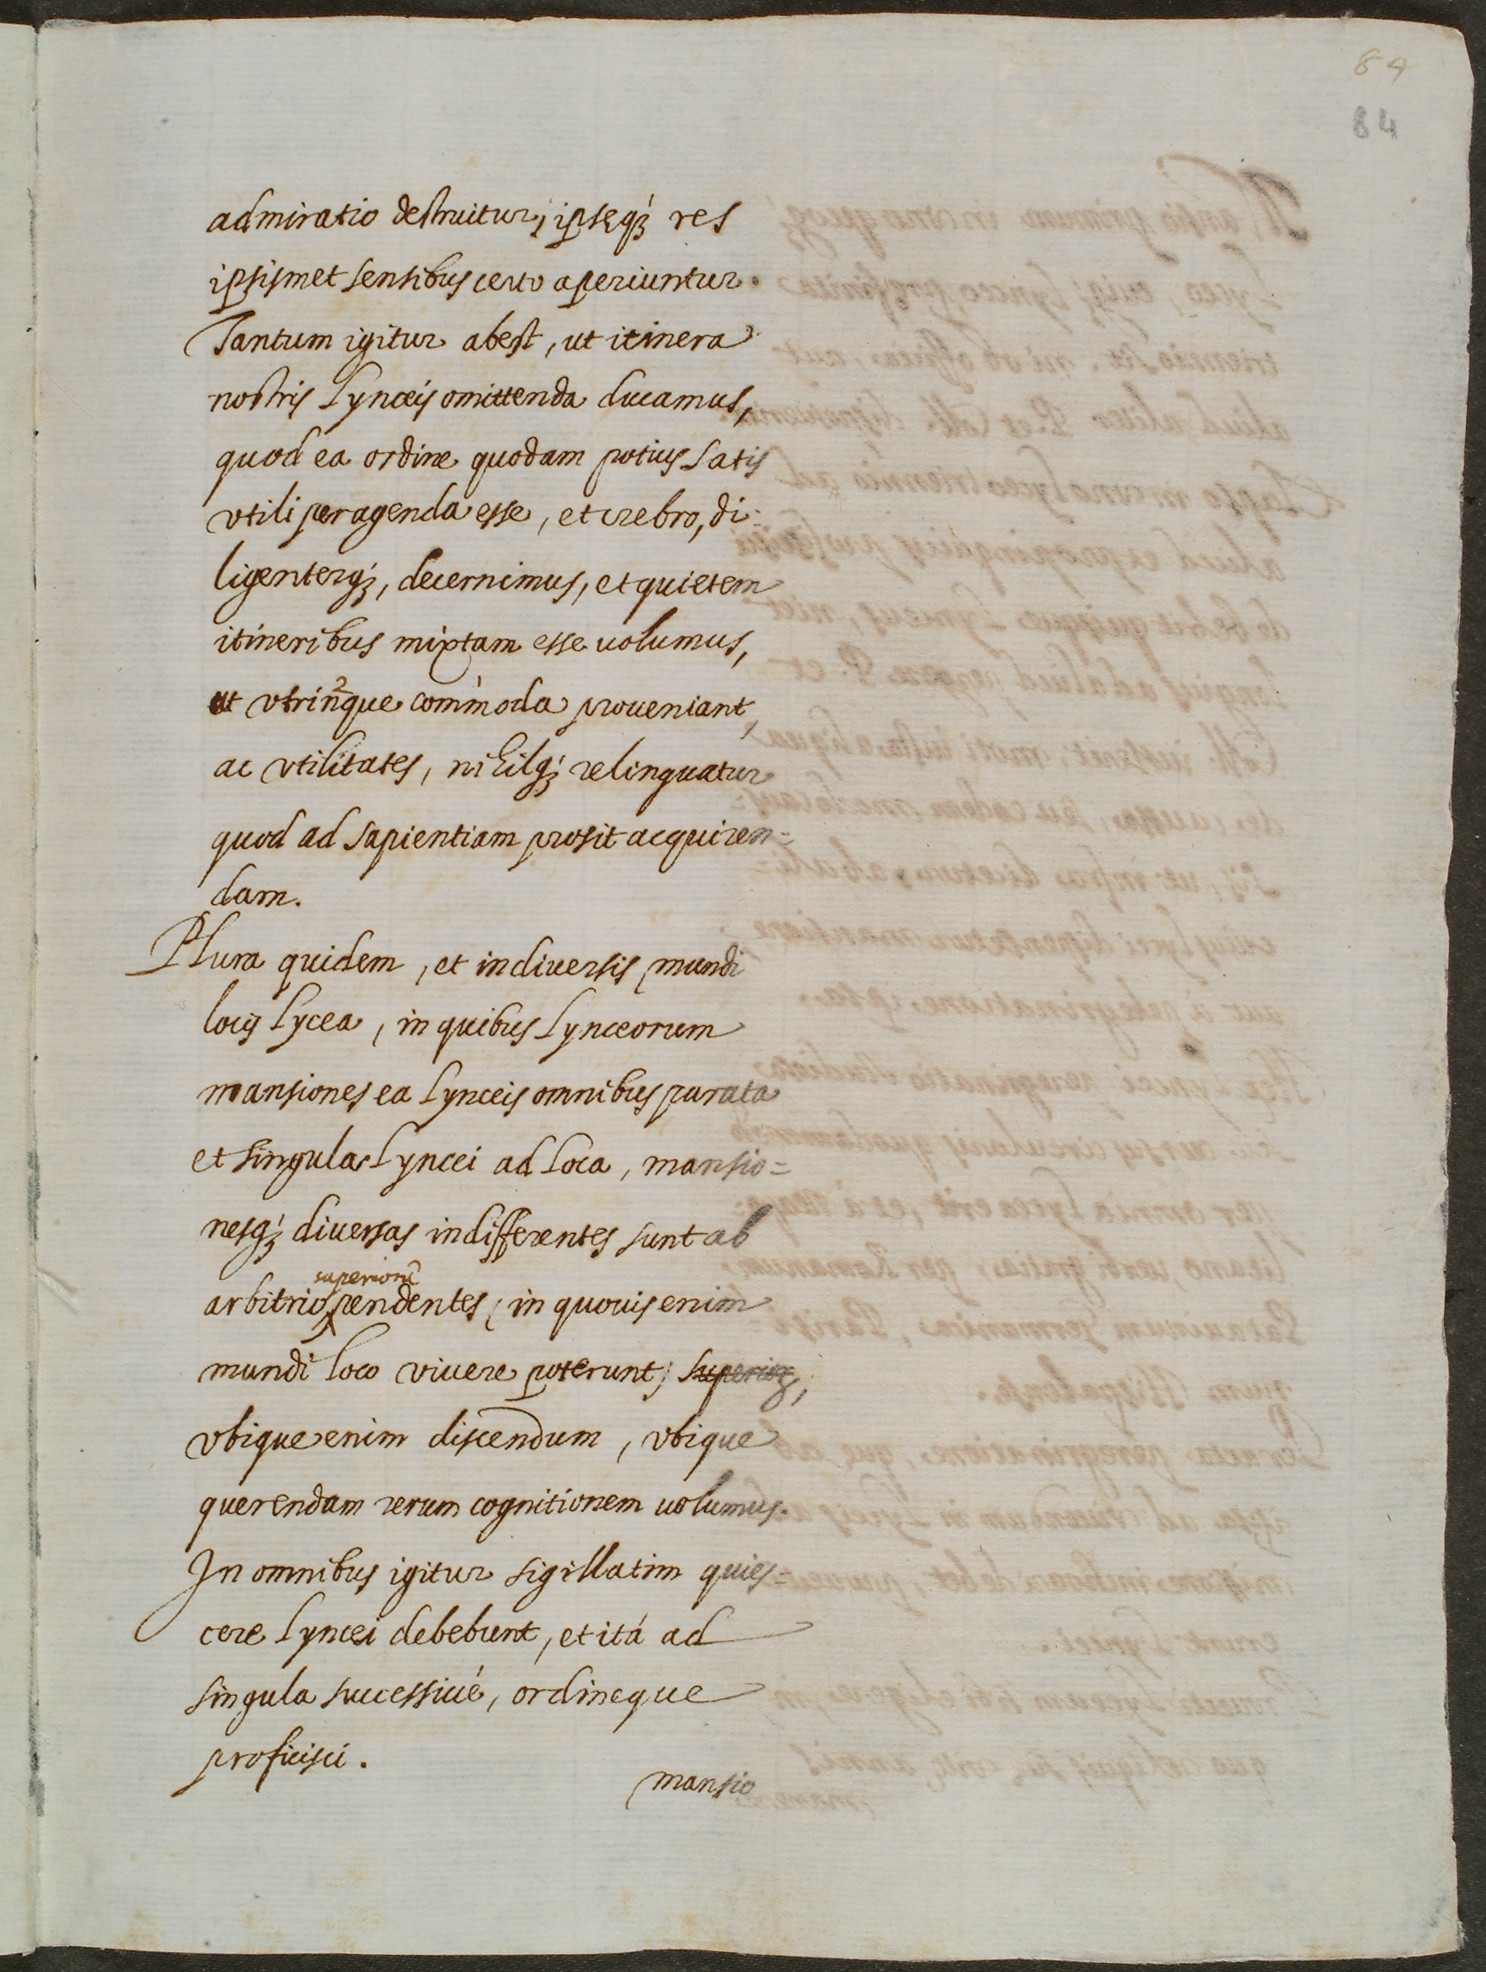 84
84
admiratio destruitur, ipseq́ʒ res
ipsismet sensibus certo aperiuntur.
Tantum igitur abest, ut itinera
nostris Lynceis omittenda ducamus,
quod ea ordine quodam potius satis
vtili peragenda esse, et crebro, di-
ligenterq́ʒ, decernimus, et quietem
itineribus mixtam esse uolumus,
ut vtrinque com̀moda proueniant,
ac vtilitates, nihilq́ʒ relinquatur
quod ad sapientiam prosit acquiren=
dam.
Plura quidem, et in diuersis mundi
locis Lycea, in quibus Lynceorum
mansiones ea Lynceis omnibus parata
et singula Lyncei ad loca, mansio=
nesq́ʒ diuersas indifferentes sunt ab
superiorū
arbitrio pendentes, in quouis enim
mundi loco viuere poterunt; superioꝝ,
vbique enim discendum, vbique
querendam rerum cognitionem uolumus.
In omnibus igitur sigillatim quies=
cere Lyncei debebunt, et itá ad
singula successiué, ordineque
proficisci.
mansio